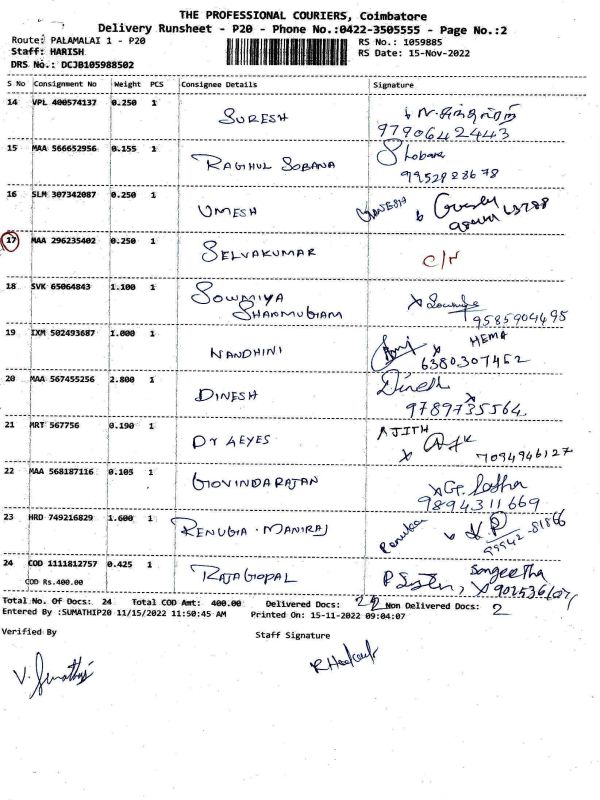 THE PROFESSIONAL COURIERS, Coimbatore
Delivery Runsheet - P20 - Phone No.:0422-3505555 - Page No.:2
Route: PALAMALAI 1 - P20 RS No.: 1059885
Staff: HARISH RS Date: 15-Nov-2022
DRS No.: DCJB105988502
S No Consignment No Weight PCS Consignee Details Signature
14 VPL 400574137 0.250 1 SURESH
9790642443
15 MAA 566652956 0.155 1 RAGHUL SOBANA Shobana
9952828678
16 SLM 307342087 0.250 1 UMESH GANESH
17 MAA 296235402 0.250 1 SELVAKUMAR
18 SVK 65064843 1.100 1 SOWMIYA SHANMUGAM
9585904495
19 IXM 502493687 1.000 1 NANDHINI HEMA
6380307452
20 MAA 567455256 2.800 1 DINESH Dinesh
9789735564
21 MRT 567756 0.190 1 Dr 4EYES AJITH
7094946127
22 MAA 568187116 0.105 1 GOVINDARAJAN
9894311669
23 HRD 749216829 1.600 1 RENUGA . MANIRAJ Renuka
99942-81866
24 COD 1111812757 0.425 1 RAJAGOPAL Sangeetha
COD Rs.400.00
Total No. Of Docs: 24 Total COD Amt: 400.00 Delivered Docs: 22 Non Delivered Docs: 2
Entered By :SUMATHIP20 11/15/2022 11:50:45 AM Printed On: 15-11-2022 09:04:07
Verified By Staff Signature
V. Sumathi